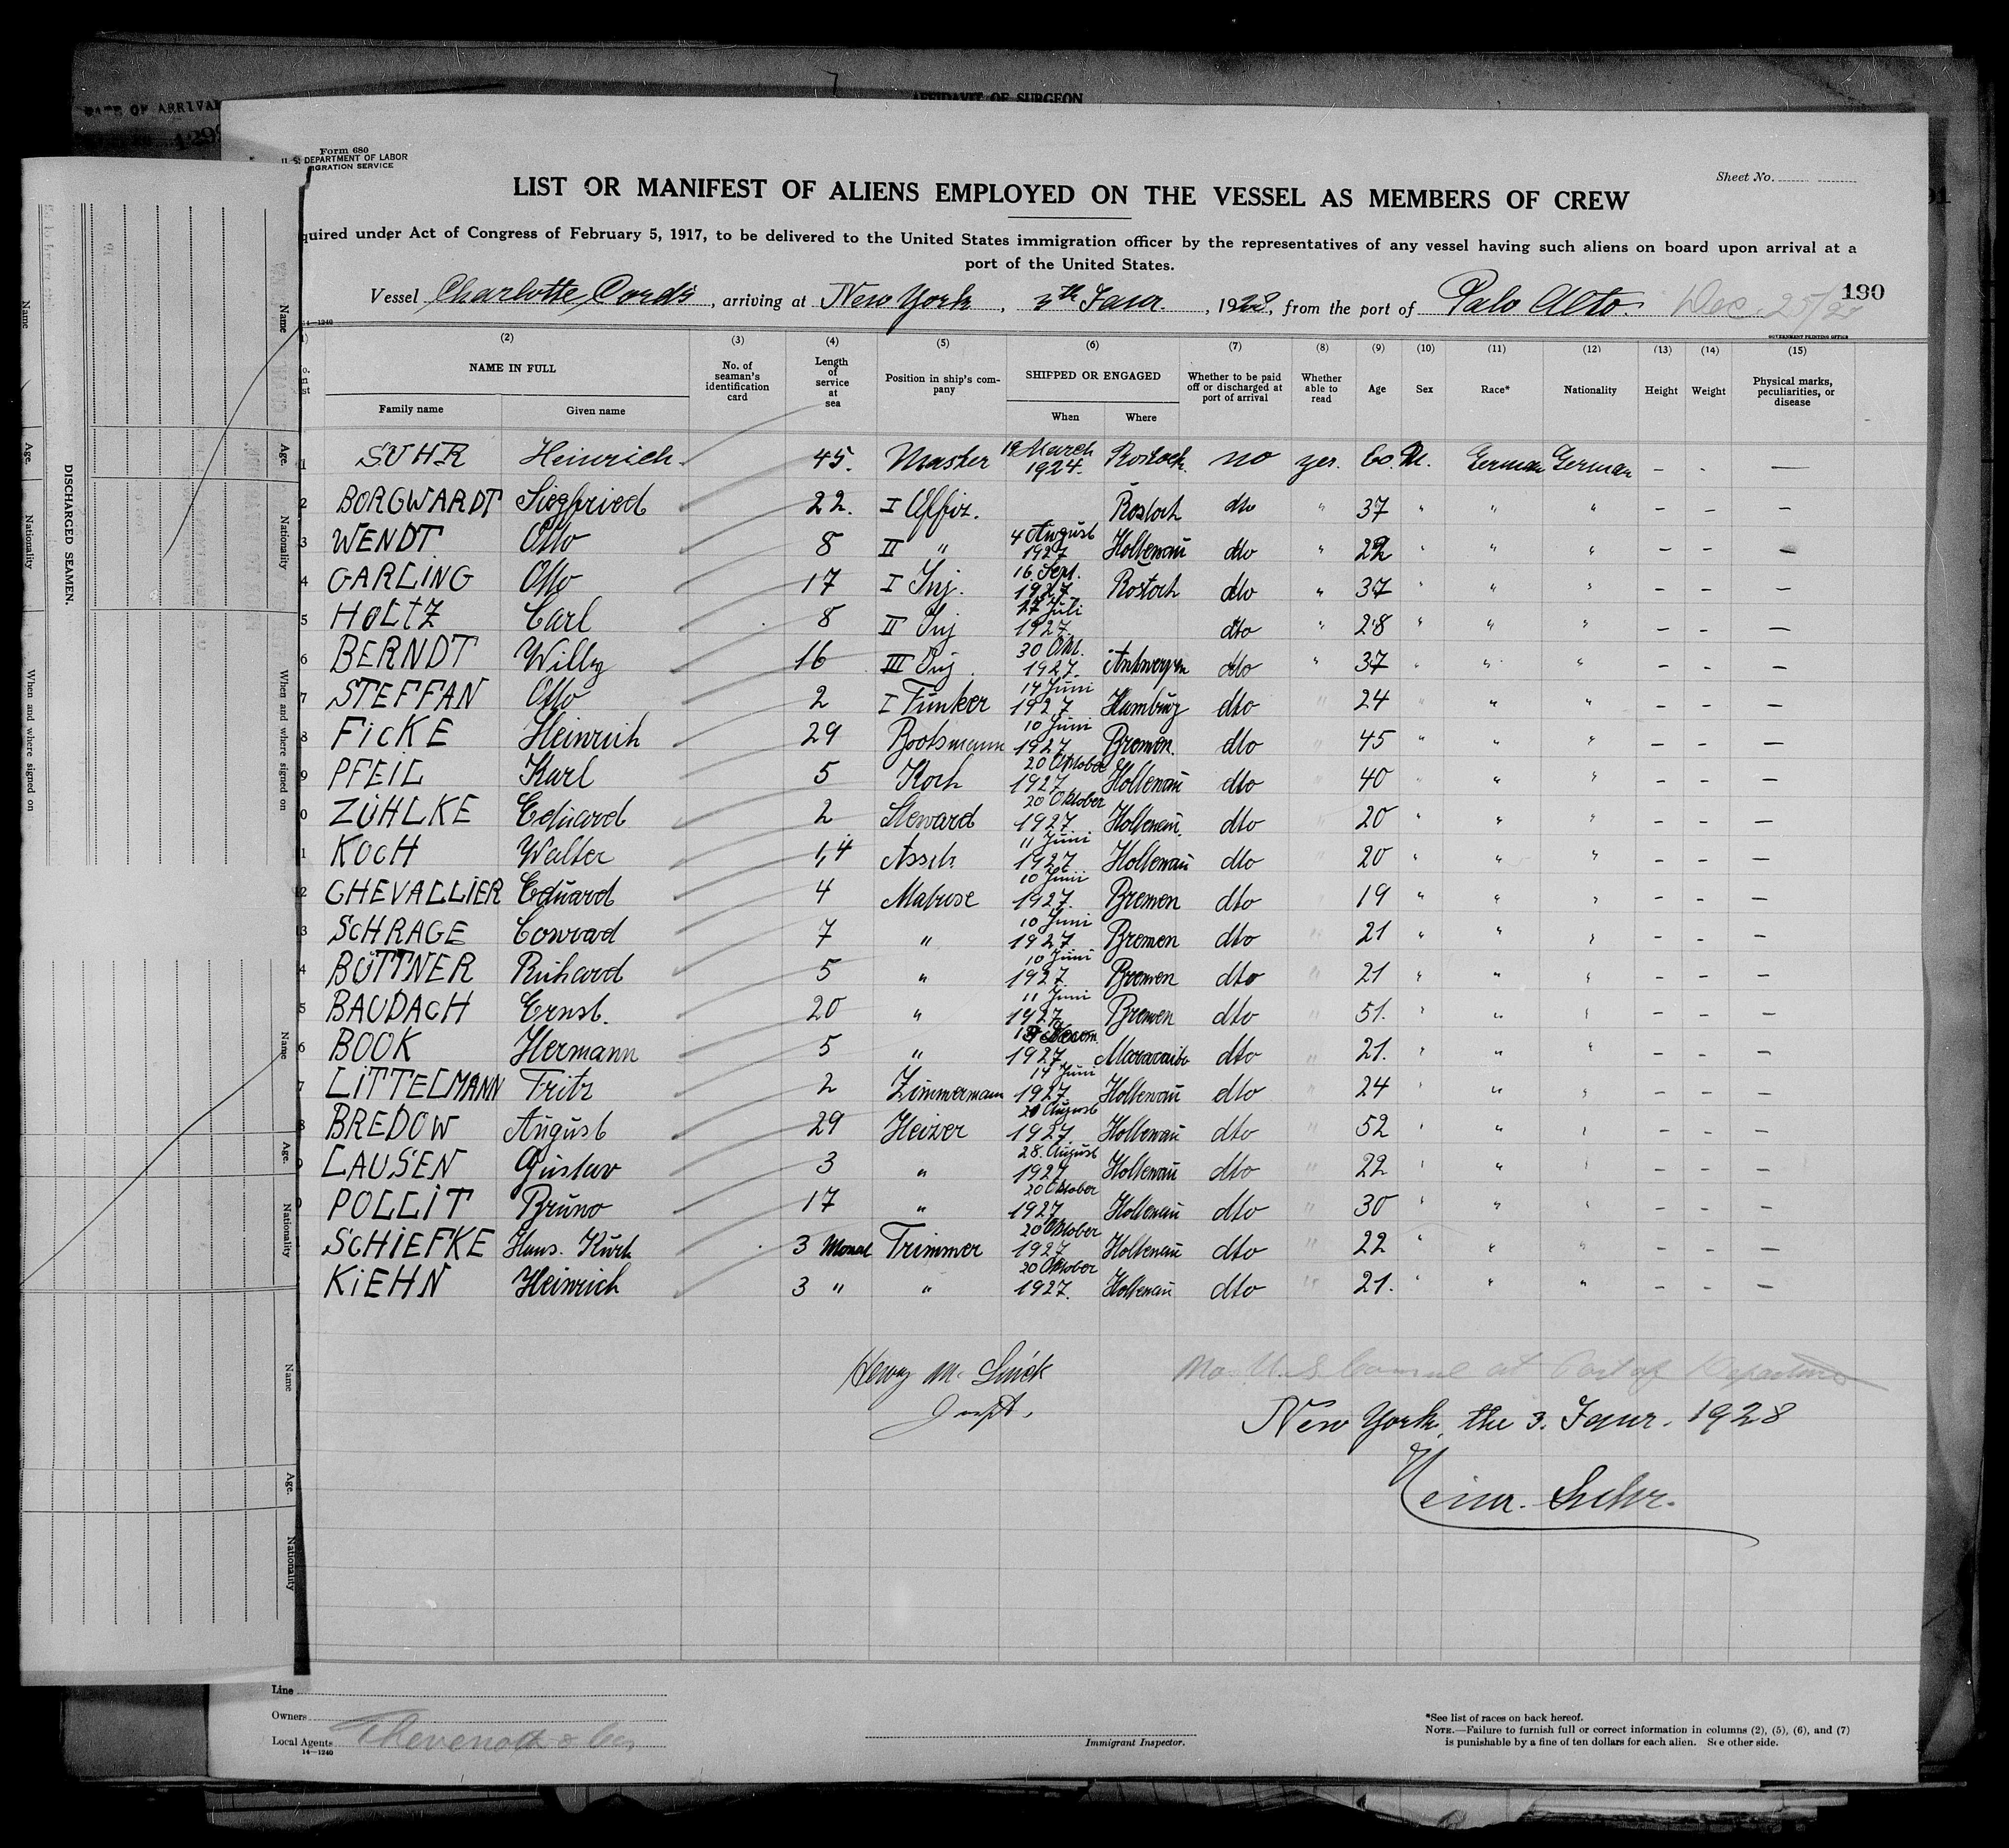 AFFIDAVIT OF SURGEON
DATE OF ARRIVAL
Form 680
U. S. DEPARTMENT OF LABOR
IGRATION SERVICE
Sheet No.
LIST OR MANIFEST OF ALIENS EMPLOYED ON THE VESSEL AS MEMBERS OF CREW
quired under Act of Congress of February 5, 1917, to be delivered to the United States immigration officer by the representatives of any vessel having such aliens on board upon arrival at a
port of the United States.
Vessel Charlotte Cords, arriving at New York, 3th Janr., 1928, from the port of Palo Alto. Dec. 25/27
190
14—1240
GOVERNMENT PRINTING OFFICE
(2) (3) (4) (5) (6) (7) (8) (9) (10) (11) (12) (13) (14) (15)
NAME IN FULL No. of seaman's identification card Length of service at sea Position in ship's company SHIPPED OR ENGAGED Whether to be paid off or discharged at port of arrival Whether able to read Age Sex Race* Nationality Height Weight Physical marks, peculiarities, or disease
Family name Given name When Where
1 SUHR Heinrich 45. Master 19 March 1924. Rostock. no yes. 60. M. German German – - —
2 BORGWARDT Siegfried 22. I Offiz. Rostock dto " 37 " " " – – –
3 WENDT Otto 8 II " 4 August 1927 Holtenau dto " 22 " " " – – –
4 GARLING Otto 17 I Inj. 16. Sept. 1927 Rostock dto " 37 " " " – – –
5 HOLTZ Carl 8 II Inj 27 Juli 1927. dto " 28 " " " – – –
6 BERNDT Willy 16 III Inj. 30 Okt. 1927. Antwerpen dto " 37 " " " – – –
7 STEFFAN Otto 2 I Funker 14 Juni 1927 Hamburg dto " 24 " " " – – –
8 FICKE Heinrich 29 Bootsmann 10 Juni 1927 Bremen. dto " 45 " " " – – –
9 PFEIL Karl 5 Koch 20 Oktober 1927 Holtenau dto " 40 " " " – – –
0 ZÜHLKE Eduard 2 Steward 20 Oktober 1927 Holtenau. dto " 20 " " " – – –
1 KOCH Walter 1,4 Assch 11 Juni 1927 Holtenau dto " 20 " " " – – –
12 CHEVALLIER Eduard 4 Matrose 10 Junii 1927. Bremen dto " 19 " " " – – –
13 SCHRAGE Conrad 7 " 10 Juni 1927 Bremen dto " 21 " " " – – –
4 BÜTTNER Richard 5 " 10 Juni 1927. Bremen dto " 21 " " " – – –
5 BAUDACH Ernst. 20 " 11 Juni 1927 Bremen dto " 51. " " " – – –
6 BOOK Hermann 5 " 1927. Maracaibo dto " 21. " " " – – –
7 LITTELMANN Fritz 2 Zimmermann 14 Juni 1927. Holtenau dto " 24 " " " – – –
8 BREDOW August 29 Heizer 20 August 1927. Holtenau dto " 52 " " " – – –
9 LAUSEN Gustav 3 " 28. August 1927. Holtenau dto " 22 " " " – – –
0 POLLIT Bruno 17 " 20 Oktober 1927 Holtenau dto " 30 " " " – – –
SCHIEFKE Hans. Kurt 3 Monat Trimmer 20 Oktober 1927 Holtenau dto " 22 " " " – – –
KIEHN Heinrich 3 " " 20 Oktober 1927. Holtenau dto " 21. " " " – – –
No U.S Consul at Port of Departure
Inspt.
New York, the 3. Janr. 1928
Heinr. Suhr.
Line
Owners
Local Agents
14—1240
Immigrant Inspector.
*See list of races on back hereof.
NOTE.—Failure to furnish full or correct information in columns (2), (5), (6), and (7)
is punishable by a fine of ten dollars for each alien. See other side.
DISCHARGED SEAMEN.
Name
Age.
Nationality
When and where signed on
Name
Age.
Nationality
When and where signed on
Name
Age.
Nationality
Name
Age.
Nationality